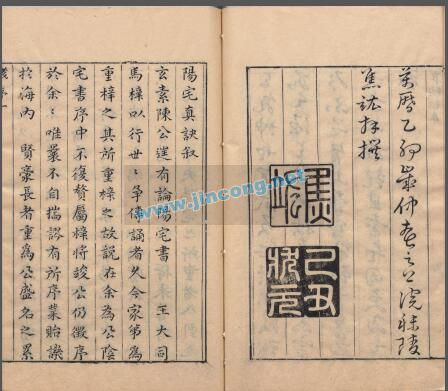 萬曆乙卯歲仲春之上浣秣陵
焦竑拜撰
焦竑
己丑狀元
陽宅真訣叙
玄素陳公選有論陽宅書 王大司
馬梓以行世〻爭傳誦者久今家第為
重梓之其所重梓之故說在余為公陰
宅書序中不復贅屬梓將竣公仍徵序
於余〻唯曩不自揣謬有所序業貽譏
於海內 賢豪長者重為公盛名之累
www.jincong.net